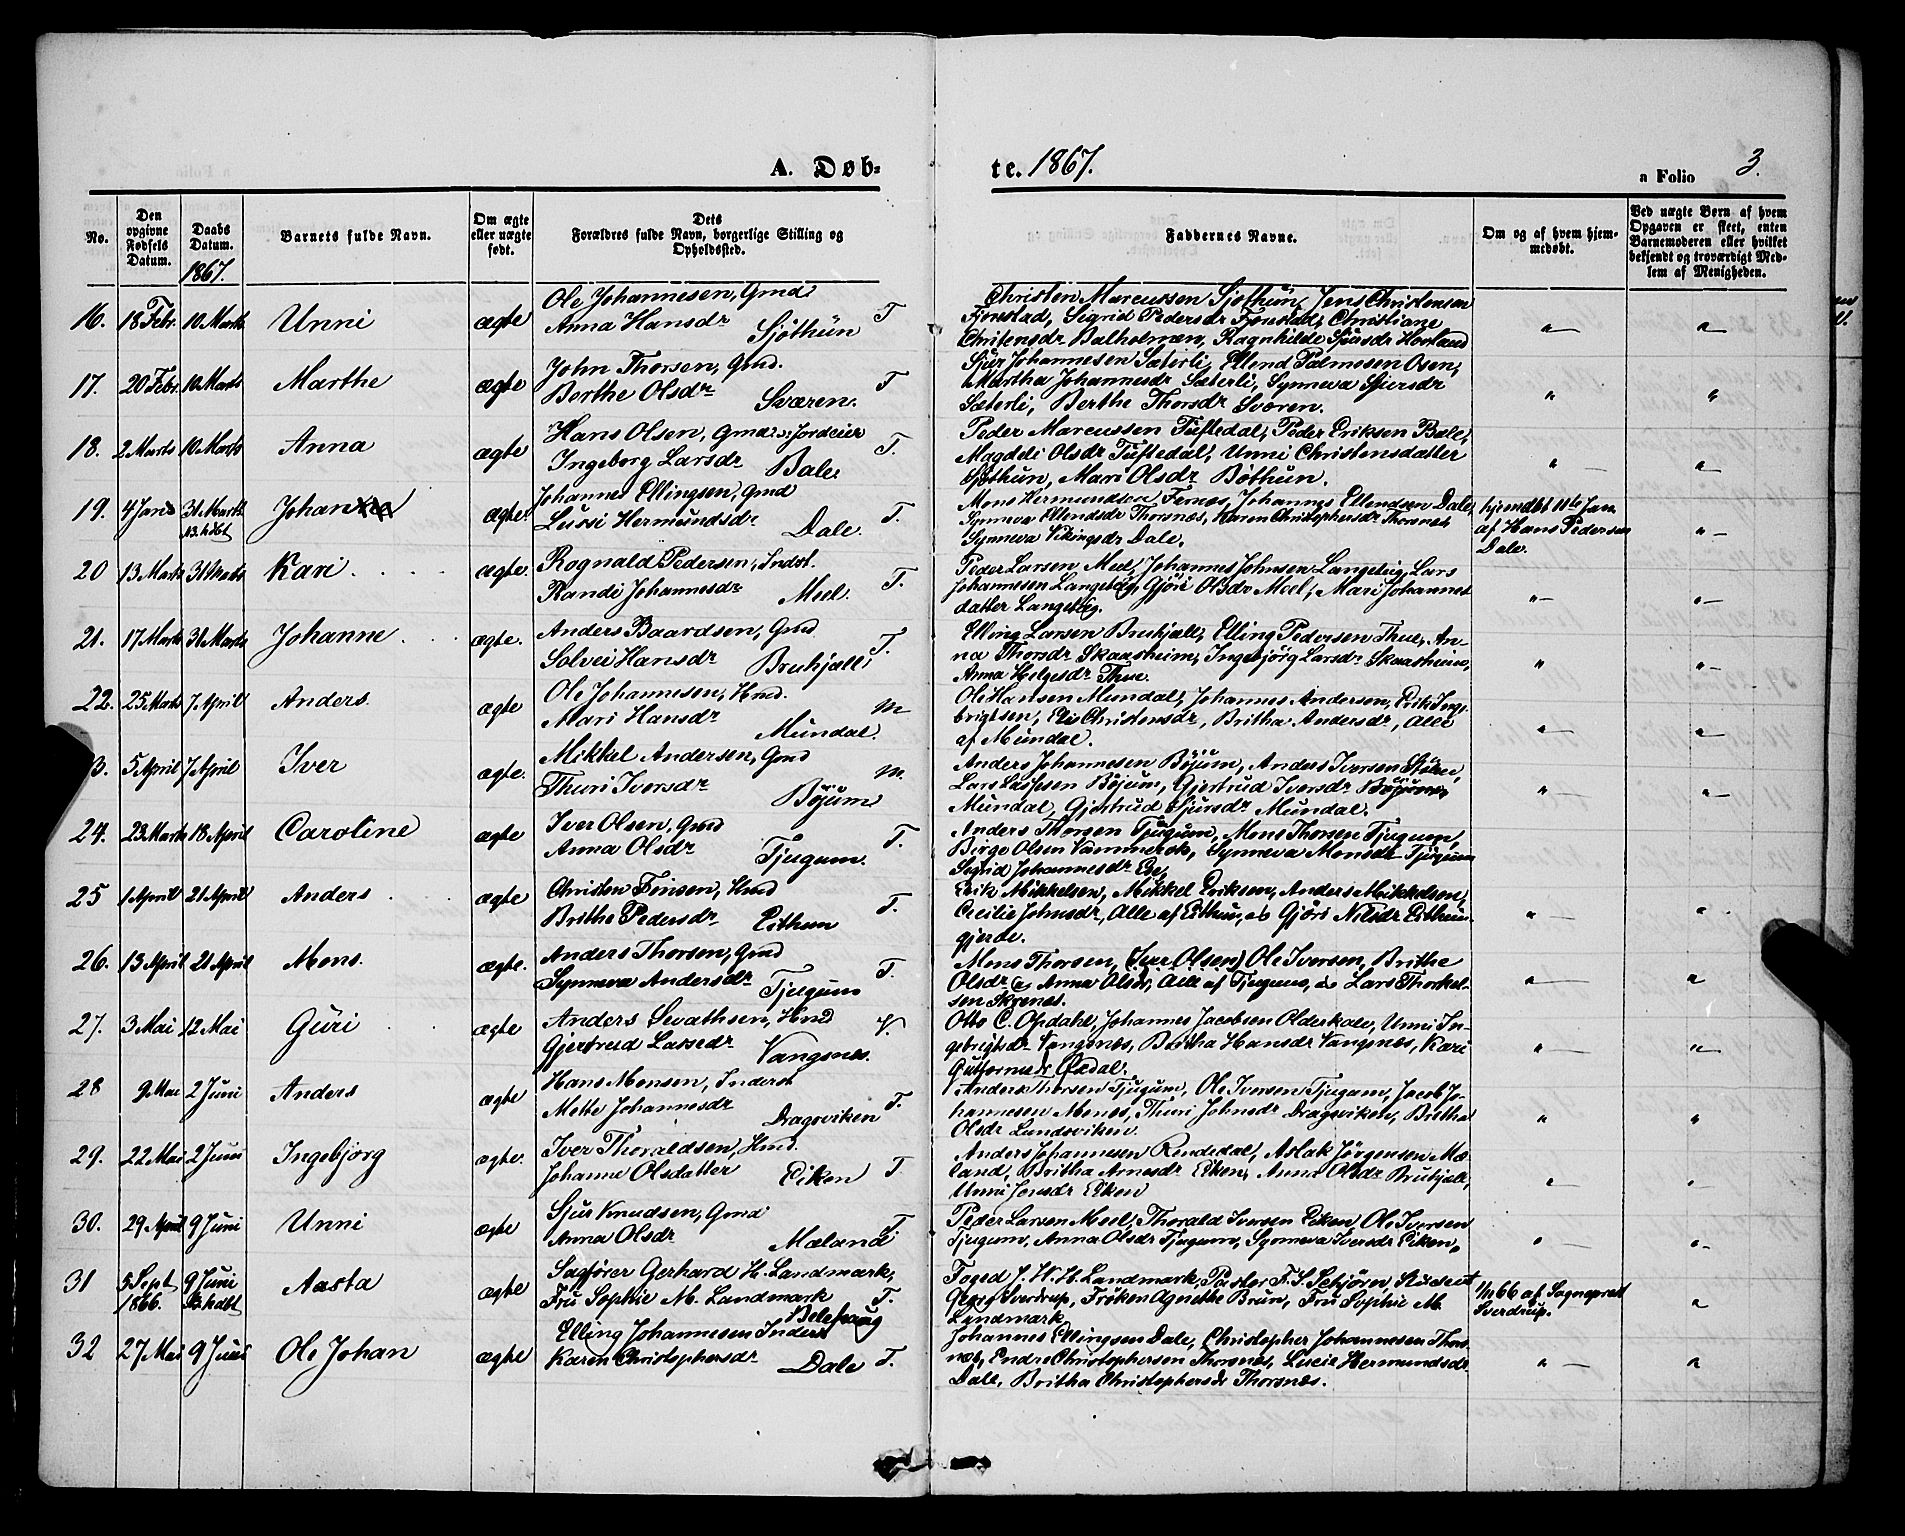 A. Døb-
te. 1867.
a Folio 3.
No.
Den opgivne Fødsels Datum.
Daabs Datum. 1867.
Barnets fulde Navn.
Om ægte eller uægte født.
Dets Forældres fulde Navn, borgerlige Stilling og Opholdssted.
Faddernes Navne.
Om og af hvem hjemmedøbt.
Ved uægte Børn af hvem Opgaven er skeet, enten Barnemoderen eller hvilket bekjendt og troværdigt Medlem af Menigheden.
16. 18 Febr. 10 Marts Unni ægte Ole Johannesen, Gmd
Anna Hansdr Sjøthun T
Christen Marcussen Sjøthun, Jens Christensen
Farestad, Sigrid Pedersdr Farestad, Christiane
Christensdr Balholmen, Ragnhilde Sjursdr Hovland
17. 20 Febr. 10 Marts Marthe ægte John Thorsen, Gmd.
Berthe Olsdr Sværen. T
Sjur Johannesen Sæterli, Ellend Palmesen Osen,
Martha Johannesdr Sæterli, Synneva Sjursdr
Sæterli, Berthe Thorsdr Sværen.
18. 2 Marts 10 Marts Anna ægte Hans Olsen, Gmd o: Jordeier
Ingeborg Larsdr Bale T.
Peder Marcussen Tuftedal, Peder Eriksen Bale,
Magdeli Olsdr Tuftedal, Unni Christensdatter
Sjøthun, Mari Olsdr Bøthun.
19. 4 Jan 31 Marts Johan ægte. Johannes Ellingsen, Gmd
Lussi Hermundsdr Dale. T.
Mons Hermundsen Fernæs, Johannes Ellendsen Dale,
Synneva Ellendsdr Thorsnæs, Karen Christophersdr Thorsnæs,
Synneva Vikingsdr Dale.
hjemdbt 11te Jan.
af Hans Pedersen
Dale.
20 13 Marts 31 Marts Kari ægte. Rognald Pedersen, Indst.
Randi Johannesdr Meel. T.
Peder Larsen Meel, Johannes Johnsen Langeteig, Lars
Johannesen Langeteig, Gjøri Olsdr Meel, Mari Johannes
datter Langeteig.
21. 17 Marts 31 Marts Johanne ægte. Anders Baardsen, Gmd
Solvei Hansdr Bruhjell T.
Elling Larsen Bruhjell, Elling Pedersen Thue, An-
na Thorsdr Skaasheim, Ingebjørg Larsdr Skaasheim,
Anna Helgesdr Thue.
22. 25 Marts 7 April Anders. ægte Ole Johannesen, Hmd.
Mari Hansdr Mundal. M
Ole Hansen Mundal, Johannes Andersen, Erik Inge-
brigtsen, Elis Christensdr, Britha Andersdr, Alle
af Mundal.
3. 5 April 7 April Iver ægte. Mikkel Andersen, Gmd
Thuri Iversdr Bøjum M.
Anders Johannesen Bøjum, Anders Iversen
Lars Lassesen Bøjum, Gjertrud Iversdr
Mundal, Gjertrud Sjursdr Mundal.
24. 23 Marts 18 April Caroline ægte Iver Olsen, Gmd
Anna Olsdr Tjugum. T.
Anders Thorsen Tjugum, Mons Thorsen Tjugum,
Birge Olsen Vammerok, Synneva Monsdr Tjugum
Sigrid Johannesdr Ese,
25 1 April 21 April Anders ægte Christen Finsen, Hmd
Brithe Pedersdr Eithun T.
Erik Mikkelsen, Mikkel Eriksen, Anders Mikkelsen,
Cecilie Johnsdr, Alle af Eithun, & Gjøri Nilsdr Eithun-
gjerde.
26. 13 April 21 April Mons. ægte. Anders Thorsen, Gmd
Synneva Andersdr Tjugum T.
Mons Thorsen, (Iver Olsen) Ole Iversen, Brithe
Olsdr & Anna Olsdr, Alle af Tjugum, & Lars Thorkel-
sen Skrenæs.
27. 3 Mai 12 Mai Guri ægte Anders Sevathsen, Hmd
Gjertrud Lassedr Vangsnæs. V.
Otto C. Opdahl, Johannes Jacobsen Olderkale, Unni In-
gebrigtsdr Vangsnæs, Britha Hansdr Vangsnæs, Kari
Guttormsdr Oxdal.
28 9 Mai 2 Juni Anders ægte Hans Monsen, Inderst
Mette Johannesdr Dragsviken T.
Anders Thorsen Tjugum, Ole Iversen Tjugum, Jacob Jo-
hannesen Menes, Thuri Johnsdr Dragsviken, Britha
Olsdr Lundsviken.
29. 22 Mai 2 Juni Ingebjørg ægte. Iver Thoraldsen, Hmd.
Johanne Olsdatter Eiken T.
Anders Johannesen Rendedal, Aslak Jørgensen Mæ-
land, Britha Arnesdr Eiken, Anna Olsdr Bruhjell,
Unni Jonsdr Eiken
30. 29 April 9 Juni Unni ægte Sjur Knudsen, Gmd
Anna Olsdr Mæland T
Peder Larsen Meel, Thorald Iversen Eiken, Ole Iversen
Tjugum, Anna Olsdr Tjugum, Synneva Iversdr Eiken,
31 5 Sept 1866. 9 Juni Aasta ægte Sagfører Gerhard H. Landmark,
Fru Sophie M. Landmark T.
Belehaug
Foged J. W. H. Landmark, Pastor F. S. Schjørn, Student
Georg Sverdrup, Frøken Agnethe Brun, Fru Sophie M.
Landmark
66 af Sognepræst
Sverdrup.
32 27 Mai 9 Juni Ole Johan ægte Elling Johannesen Inderst
Karen Christophersdr Dale T.
Johannes Ellingsen Dale, Christopher Johannesen Thors-
næs, Endre Christophersen Thorsnæs, Lucie Hermundsdr
Dale, Britha Christophersdr Thorsnæs.